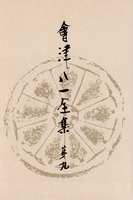 會津八一全集 第九